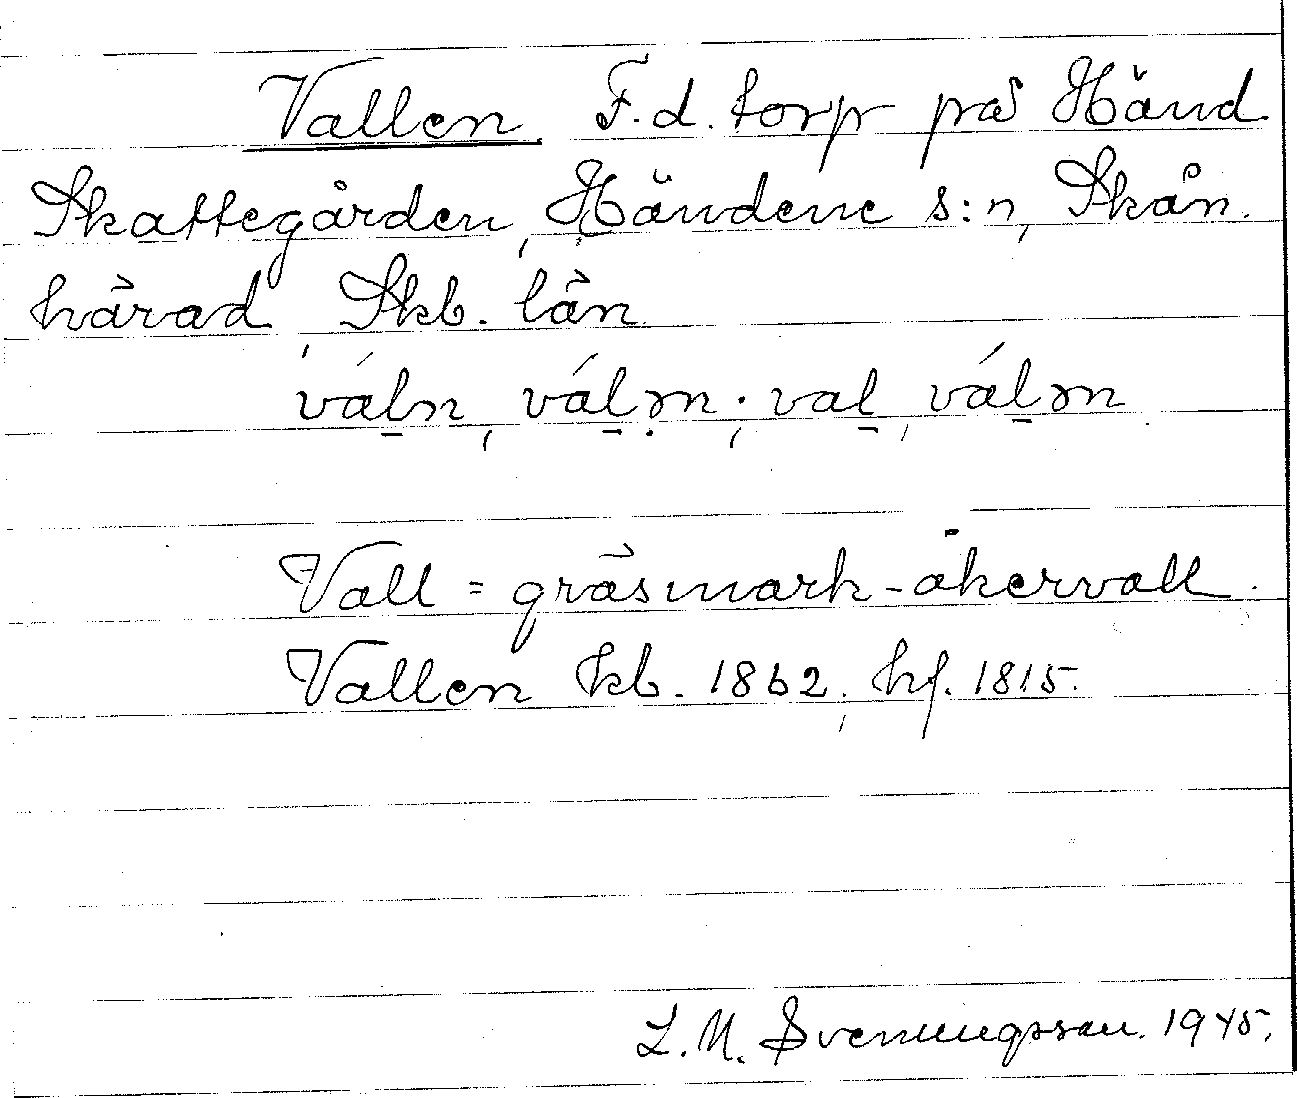 Vallen. F.d. torp på Händ.
Skattegården, Händene s:n, Skån.
härad, Skb. län.
váḻn, váḻən; vaḻ, váḻən
Vall = gräsmark - åkervall.
Vallen kb. 1862; hf. 1815.
L.M. Svenungsson. 1945.